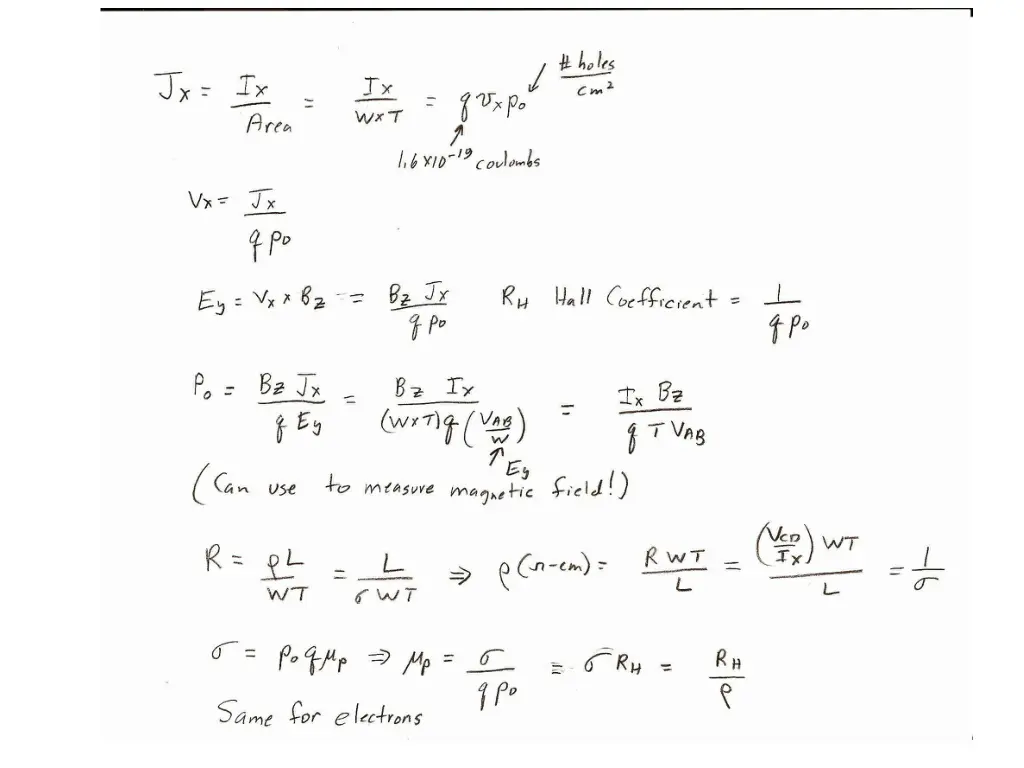 # holes / cm²
Jx = Ix / Area = Ix / WxT = q vx po
1.6 x 10⁻¹⁹ coulombs
Vx = Jx / q po
Ey = Vx x Bz = Bz Jx / q Po   RH Hall Coefficient = 1 / q Po
Po = Bz Jx / q Ey = Bz Ix / (WxT) q (VAB / W) = Ix Bz / q T VAB
Ey
(Can use to measure magnetic field!)
R = ρL / WT = L / σWT ⇒ ρ (Ω-cm) = RWT / L = (VCD / Ix) WT / L = 1 / σ
σ = Po q μp ⇒ μp = σ / q Po = σ RH = RH / ρ
Same for electrons